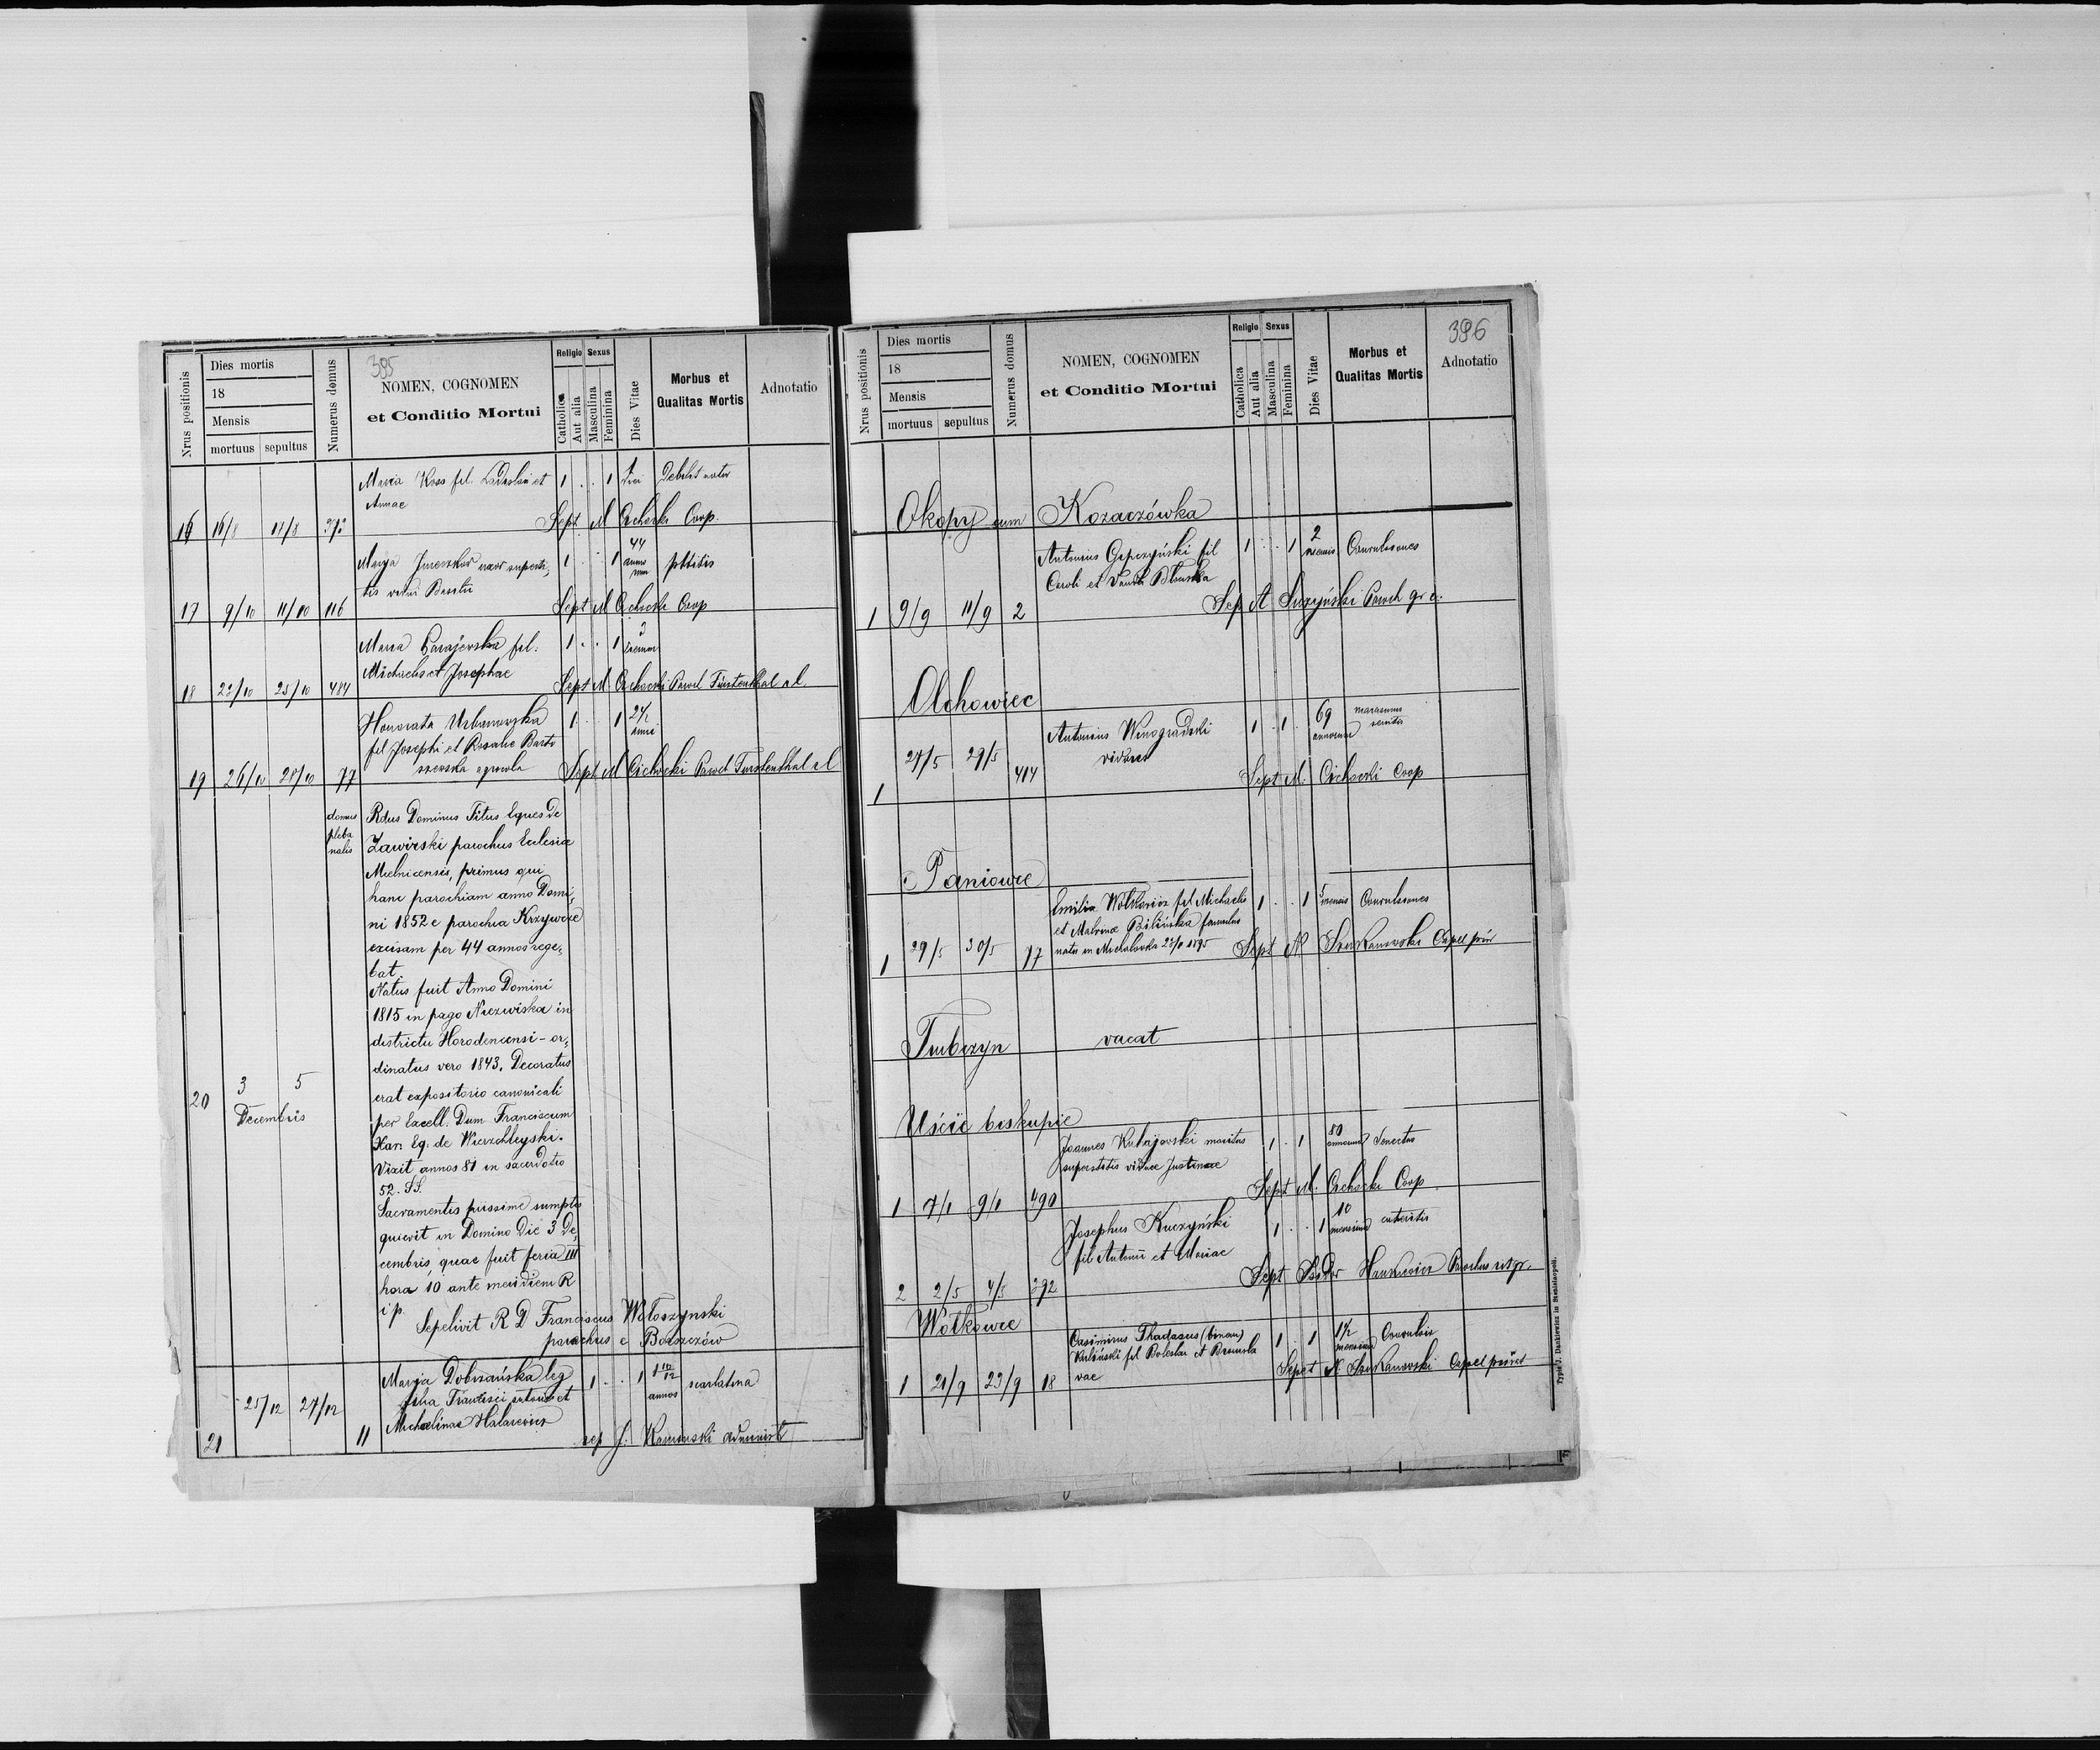 Nrus positionis
Dies mortis
18
Mensis
mortuus sepultus
Numerus domus
385
NOMEN, COGNOMEN
et Conditio Mortui
Religio Sexus
Catholica
Aut alia
Masculina
Feminina
Dies Vitae
Morbus et
Qualitas Mortis
Adnotatio
Maria Koss fil. Ladislai et 1 . . 1
Annae
16 16/8 18/8 373 Sept M Cichocki Coop.
44
1 . . 1
17 9/10 11/10 116 Sept M Cichocki Coop
Maria fil. 1 . . 1 3
Michaelis et Josephae
18 23/10 25/10 484 Sept M. Cichocki Fürstenthal
Honorata Urbanowska 1 . . 1 2½
fil Josephi et Rosalie Barto
szewska agricola
19 26/10 28/10 77 Sept M Cichocki Furstenthal
domus
pleba
nalis
Rdus Dominus Titus Eques de
Zawirski parochus Ecclesiae
Mielnicensis, primus qui
hanc parochiam anno Domi,
ni 1852 e parochia Krzywcze
excisam per 44 annos rege,
bat.
Natus fuit Anno Domini
1815 in pago Niezwiska in
districtu Horodencensi - or,
dinatus vero 1843. Decoratus
erat expositorio canonicali
per Excell. Dum. Franciscum
Xar. Eq. de Wierzchleyski.
Vixit annos 81 in sacerdotio
52. SS.
Sacramentis piissime sumptis
quievit in Domino Die 3 De,
cembris, quae fuit feria III
hora 10 ante meridiem R
i p.
20 3 5
Decembris
Sepelivit R D Franciscus Wołoszynski
parochus e Borszczów
Marya Dobrzańska leg 1 . . 1 1 10/12 scarlatina
filia Francisci et annos
Michaelinae Halarewicz
21 25/12 27/12 11 sep J. Kamenski administ
Nrus positionis
Dies mortis
18
Mensis
mortuus sepultus
Numerus domus
NOMEN, COGNOMEN
et Conditio Mortui
Religio Sexus
Catholica
Aut alia
Masculina
Feminina
Dies Vitae
Morbus et
Qualitas Mortis
396
Adnotatio
Okopy cum Kozaczówka
Antonius fil 1 . . 1 2 Convulsiones
Caroli et
1 9/9 11/9 2 Sep A Paroch gr c.
Olchowiec
Antonius Winogradski 1 . 1 . 69 marasmus
viduus annorum senilis
1 27/5 29/5 414 Sept M. Cichocki Coop
Paniowce
Emilia fil Michaelis 1 . . 1 5 mensis Convulsiones
et Malvinae Bilińska famulus
nata in 1895
1 29/5 30/5 17 Sept N Szukanowski Capel priv
Trubczyn vacat
Uście biskupie
Joannes maritus 1 . 1 80 Senectus
superstitis viduae Justinae annorum
1 7/1 9/1 490 Sept M. Cichocki Coop
Josephus Kuczyński 1 . . 1 10 enteritis
fil Antonii et Mariae mensium
2 2/5 4/5 392 Sept Isidor Parochus rit gr.
Wołkowce
Casimirus Thadaeus (binom) 1 . 1 1½ Convulsis
fil Boleslai et Bronisla mensium
vae
1 21/9 23/9 18 Sepet N. Szukanowski Capel privat
Typis J. Dankiewicz in Stanislaopoli.